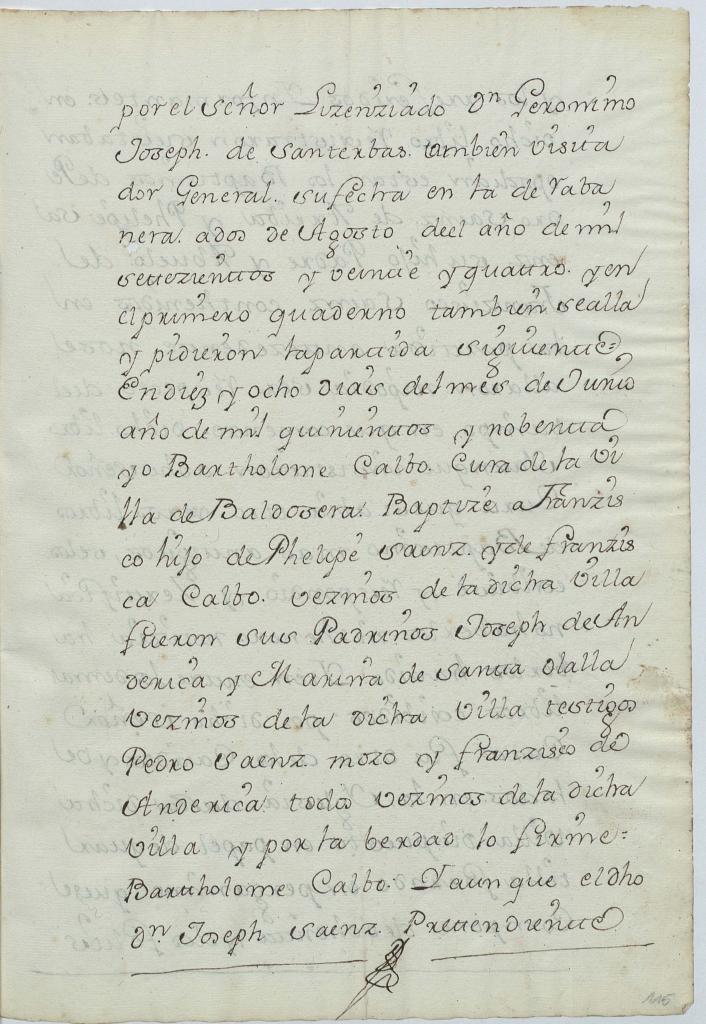 por el señor Lizenziado Dn. Geronimo
Joseph. de Santerbas. tambien visita
dor General. su fecha en la de Raba
nera. a dos de Agosto deel año de mil
settezienttos y veintte y quattro. y en
el primero quaderno tambien se alla
y pidieron la parttida siguientte=
En diez y ocho dias del mes de Junio
año de mil quinienttos y nobentta
yo Bartholome Calbo. Cura de la Vi
lla de Baldosera. Baptize a Franzis
co hijo de Phelipe Saenz. y de franzis
ca Calbo. vezinos de la dicha Villa
fueron sus Padrinos Joseph de An
derica y Marina de Santta Olalla
vezinos de la dicha Villa testigos
Pedro Saenz. mozo y franzisco de
Anderica todos vezinos de la dicha
Villa y por la berdad lo firme=
Barttholome Calbo. Y aunque el dho
Dn. Joseph Saenz. Prettendientte
115